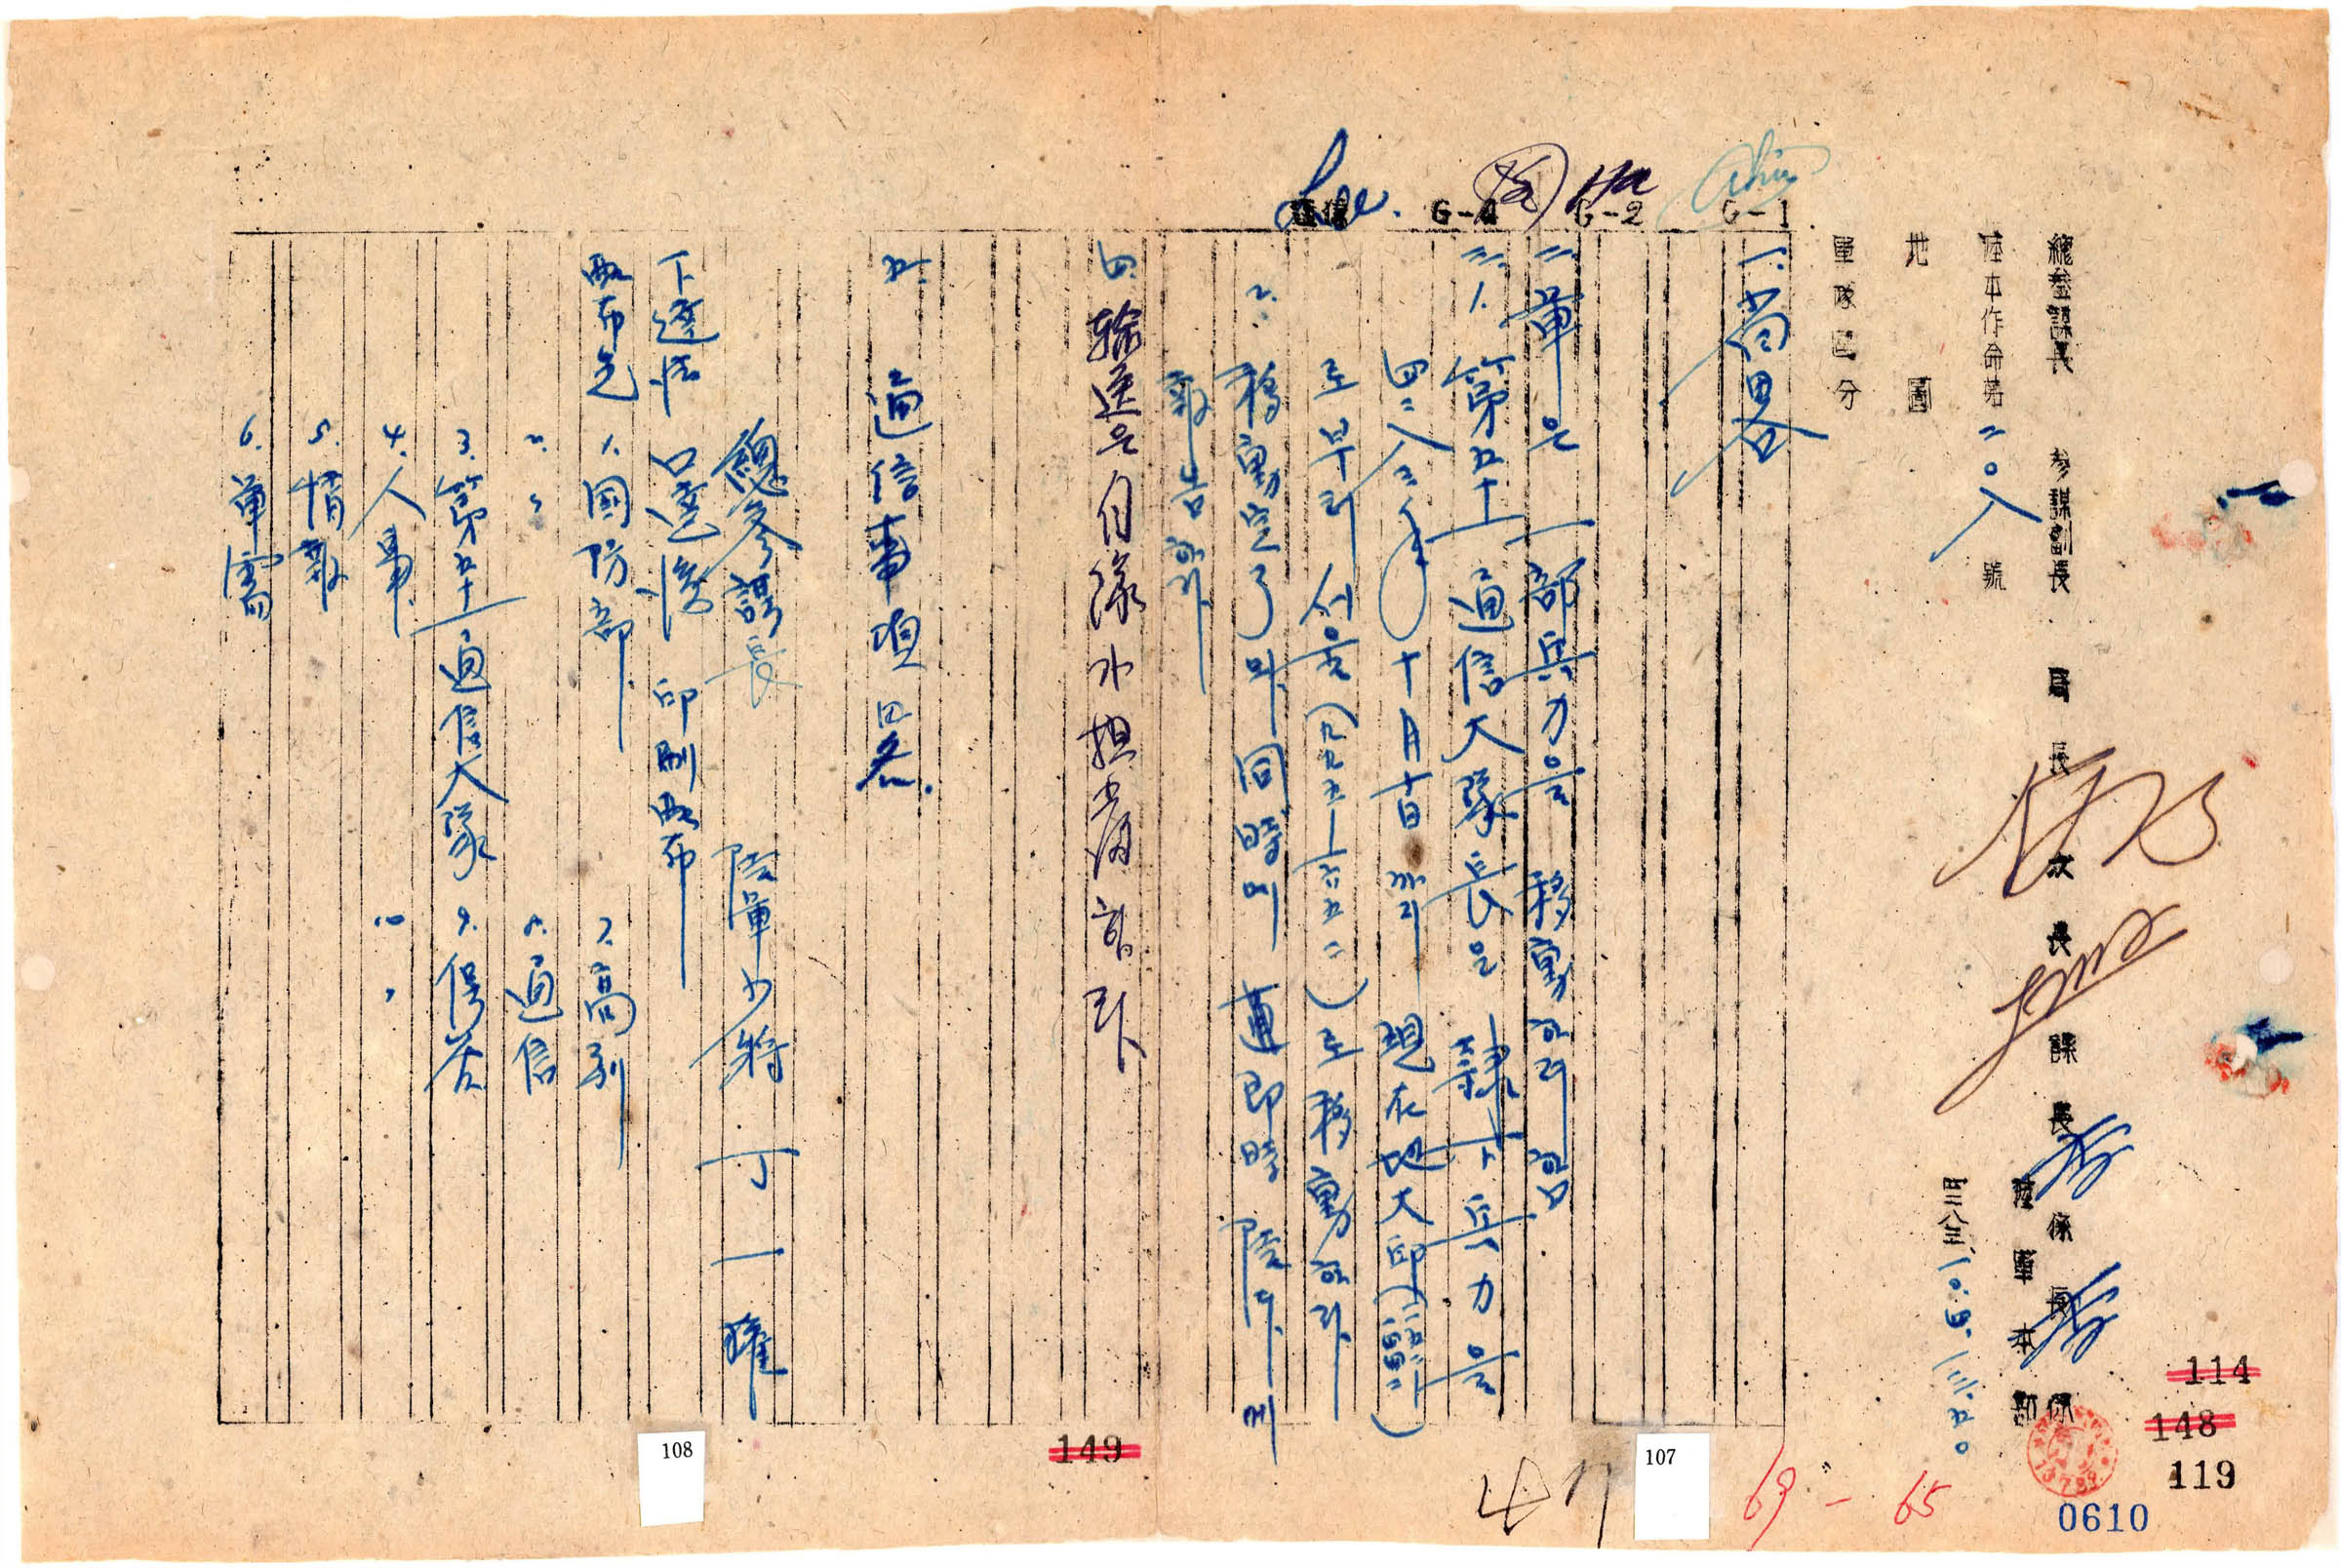 總參謀長 參謀副長 局長 次長 課長 係長 係
陸本作命第二〇八號
陸軍本部
四二八三、一〇.五.一三.五〇
地圖
軍隊區分
G-1
G-2
G-4
通信
Lee.
Ha
一. 尙畧
二. 軍은 一部兵力을 移動하려 함
三. 1. 第五十一通信大隊長은 隸下兵力을
四二八三年十月十日까지 現在地大邱
로부터 서울(九九五—六五二)로 移動하라
2. 移動完了와 同時에 直卽時 陸本에
報告하라
四. 輸送은 自隊가 担當하라
五. 通信事項 呂畧.
總參謀長 陸軍少將 丁一權
下達法 口達後 印刷配布
配布先 1. 國防部 7. 高別
2. 〃 8. 通信
3. 第五十一通信大隊 9. 保管
4. 人事 10 〃
5. 情報
6. 軍需
108
149
107
417
69 - 65
114
148
119
0610